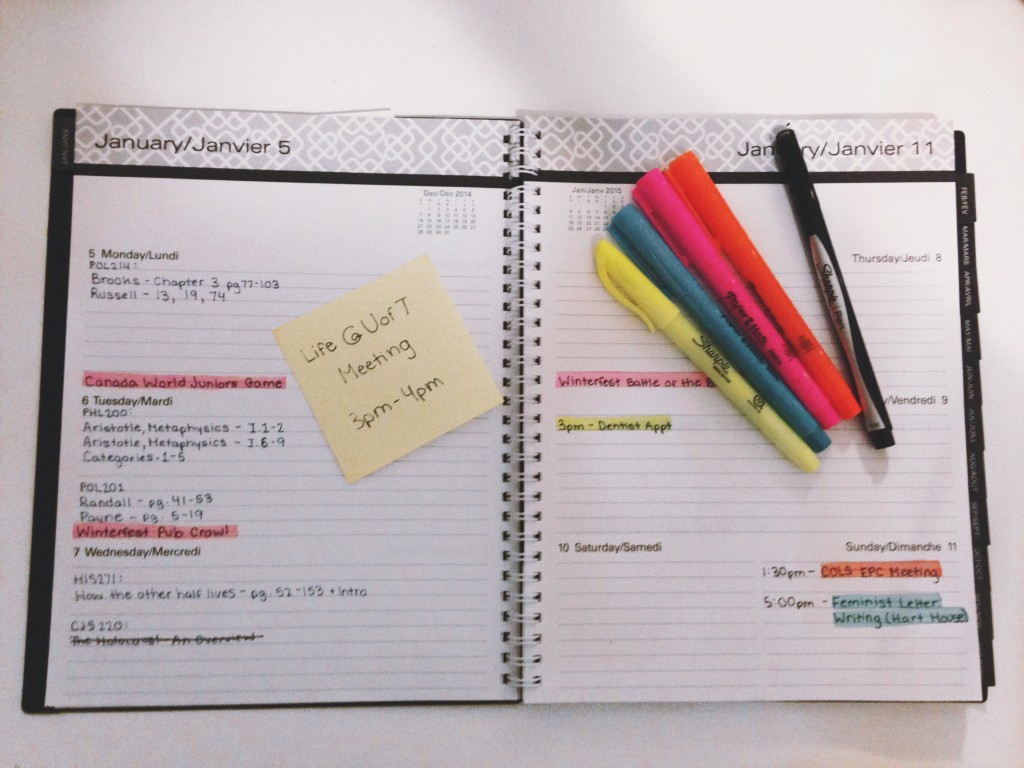 January/Janvier 5
Dec/Déc 2014
5 Monday/Lundi
POL214:
Brooks - Chapter 3 pg 77-103
Russell - 13, 19, 74
Canada World Juniors Game
6 Tuesday/Mardi
PHL200:
Aristotle, Metaphysics - I.1-2
Aristotle, Metaphysics - I.6-9
Categories - 1-5
POL201
Randall - pg. 41-53
Payne - pg. 5-19
Winterfest Pub Crawl
7 Wednesday/Mercredi
HIS271:
How the other half lives - pg. 52-153 + Intro
CJS220:
The Holocaust - An Overview
Life @ UofT
Meeting
3pm-4pm
/Janvier 11
Jan/Janv 2015
Thursday/Jeudi 8
Winterfest Battle of the
/Vendredi 9
3pm - Dentist Appt
10 Saturday/Samedi
Sunday/Dimanche 11
1:30pm - COLS EPC Meeting
5:00pm - Feminist Letter
Writing (Hart House)
Sharpie
Sharpie Pen
FEB/FÉV
MAR/MARS
APR/AVRIL
MAY/MAI
JUN/JUIN
JUL/JUIL
AUG/AOÛT